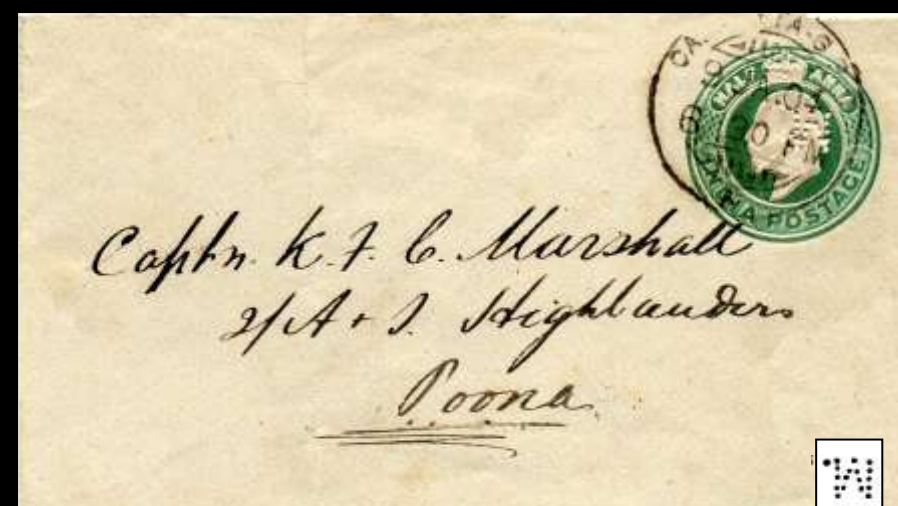 HALF ANNA
INDIA POSTAGE
Captn. K. F. C. Marshall
2/A + S. Highlanders
Poona